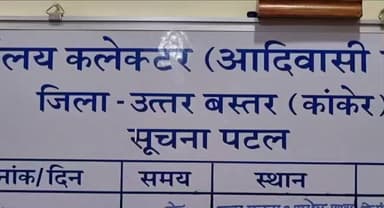 लय कलेक्टर (आदिवासी
जिला - उत्तर बस्तर (कांकेर)
सूचना पटल
नांक/दिन समय स्थान